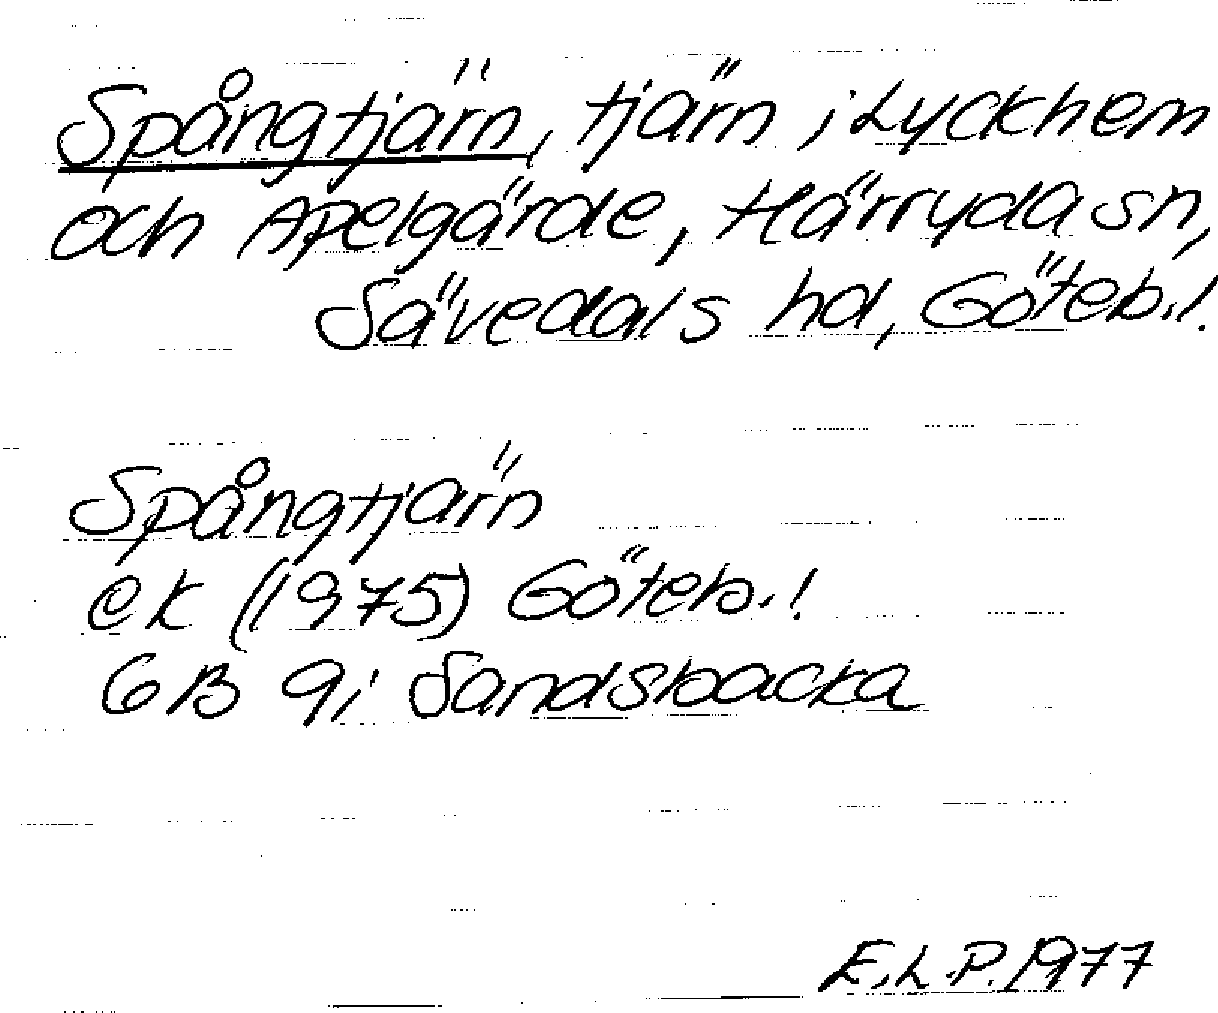 Spångtjärn, tjärn i Lyckhem
och Apelgärde, Härryda sn,
Sävedals hd, Göteb.l.
Spångtjärn
ek (1975) Göteb.l
6B 9i Sandsbacka
E.L.P. 1977